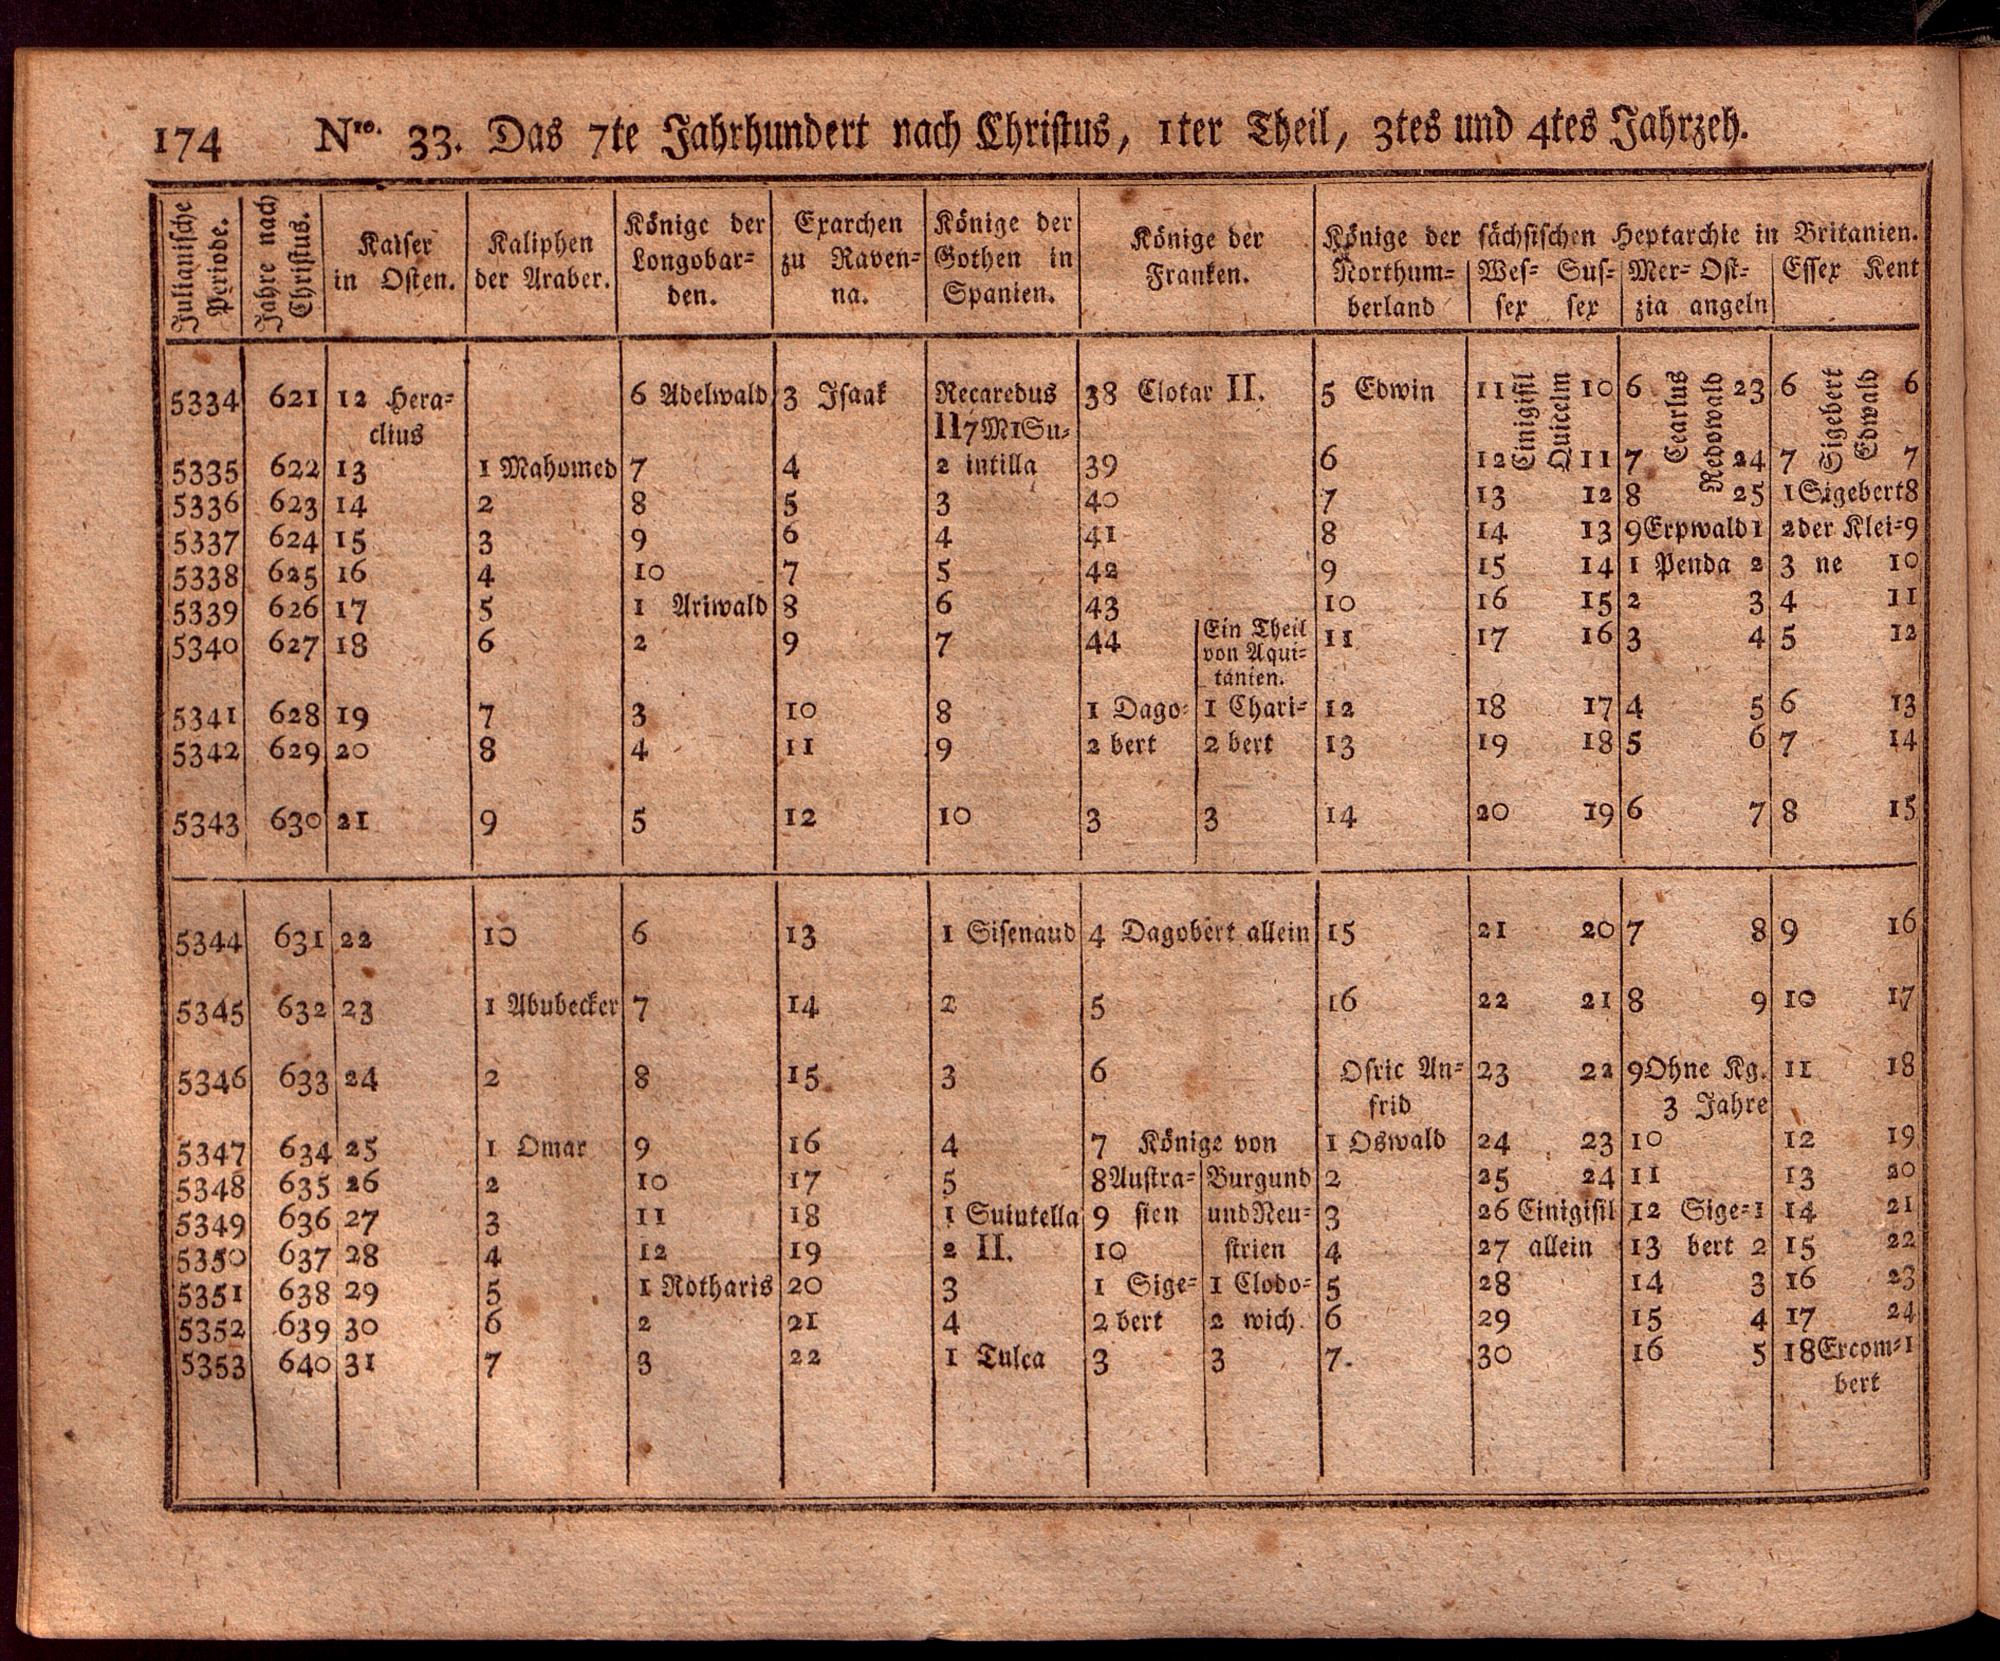 174 Nro. 33. Das 7te Jahrhundert nach Christus, 1ter Theil, 3tes und 4tes Jahrzeh.
Julianische Periode.
Jahre nach Christus.
Kaiser in Osten.
Kaliphen der Araber.
Könige der Longobar= den.
Exarchen zu Raven= na.
Könige der Gothen in Spanien.
Könige der Franken.
Könige der sächsischen Heptarchie in Britanien.
Northum= berland
Wes= sex
Sus= sex
Mer= zia
Ost= angeln
Essex
Kent
5334 621 12 Hera= 6 Adelwald 3 Isaak Recaredus 38 Clotar II. 5 Edwin 11 Einigisil Quicelm 10 6 Cearlus Redowald 23 6 Sigebert Edwald 6
clius II 7 M 1 Su=
5335 622 13 1 Mahomed 7 4 2 intilla 39 6 12 11 7 24 7 7
5336 623 14 2 8 5 3 40 7 13 12 8 25 1 Sigebert 8
5337 624 15 3 9 6 4 41 8 14 13 9 Erpwald 1 2 der Klei= 9
5338 625 16 4 10 7 5 42 9 15 14 1 Penda 2 3 ne 10
5339 626 17 5 1 Ariwald 8 6 43 10 16 15 2 3 4 11
5340 627 18 6 2 9 7 44 Ein Theil 11 17 16 3 4 5 12
von Aqui=
tanien.
5341 628 19 7 3 10 8 1 Dago= 1 Chari= 12 18 17 4 5 6 13
5342 629 20 8 4 11 9 2 bert 2 bert 13 19 18 5 6 7 14
5343 630 21 9 5 12 10 3 3 14 20 19 6 7 8 15
5344 631 22 10 6 13 1 Sisenand 4 Dagobert allein 15 21 20 7 8 9 16
5345 632 23 1 Abubecker 7 14 2 5 16 22 21 8 9 10 17
5346 633 24 2 8 15 3 6 Osric An= 23 22 9 Ohne Kg. 11 18
frid 3 Jahre
5347 634 25 1 Omar 9 16 4 7 Könige von 1 Oswald 24 23 10 12 19
5348 635 26 2 10 17 5 8 Austra= Burgund 2 25 24 11 13 20
5349 636 27 3 11 18 1 Suintella 9 sien und Neu= 3 26 Einigisil 12 Sige= 1 14 21
5350 637 28 4 12 19 2 II. 10 strien 4 27 allein 13 bert 2 15 22
5351 638 29 5 1 Rotharis 20 3 1 Sige= 1 Clodo= 5 28 14 3 16 23
5352 639 30 6 2 21 4 2 bert 2 wich. 6 29 15 4 17 24
5353 640 31 7 3 22 1 Tulca 3 3 7. 30 16 5 18 Ercom= 1
bert